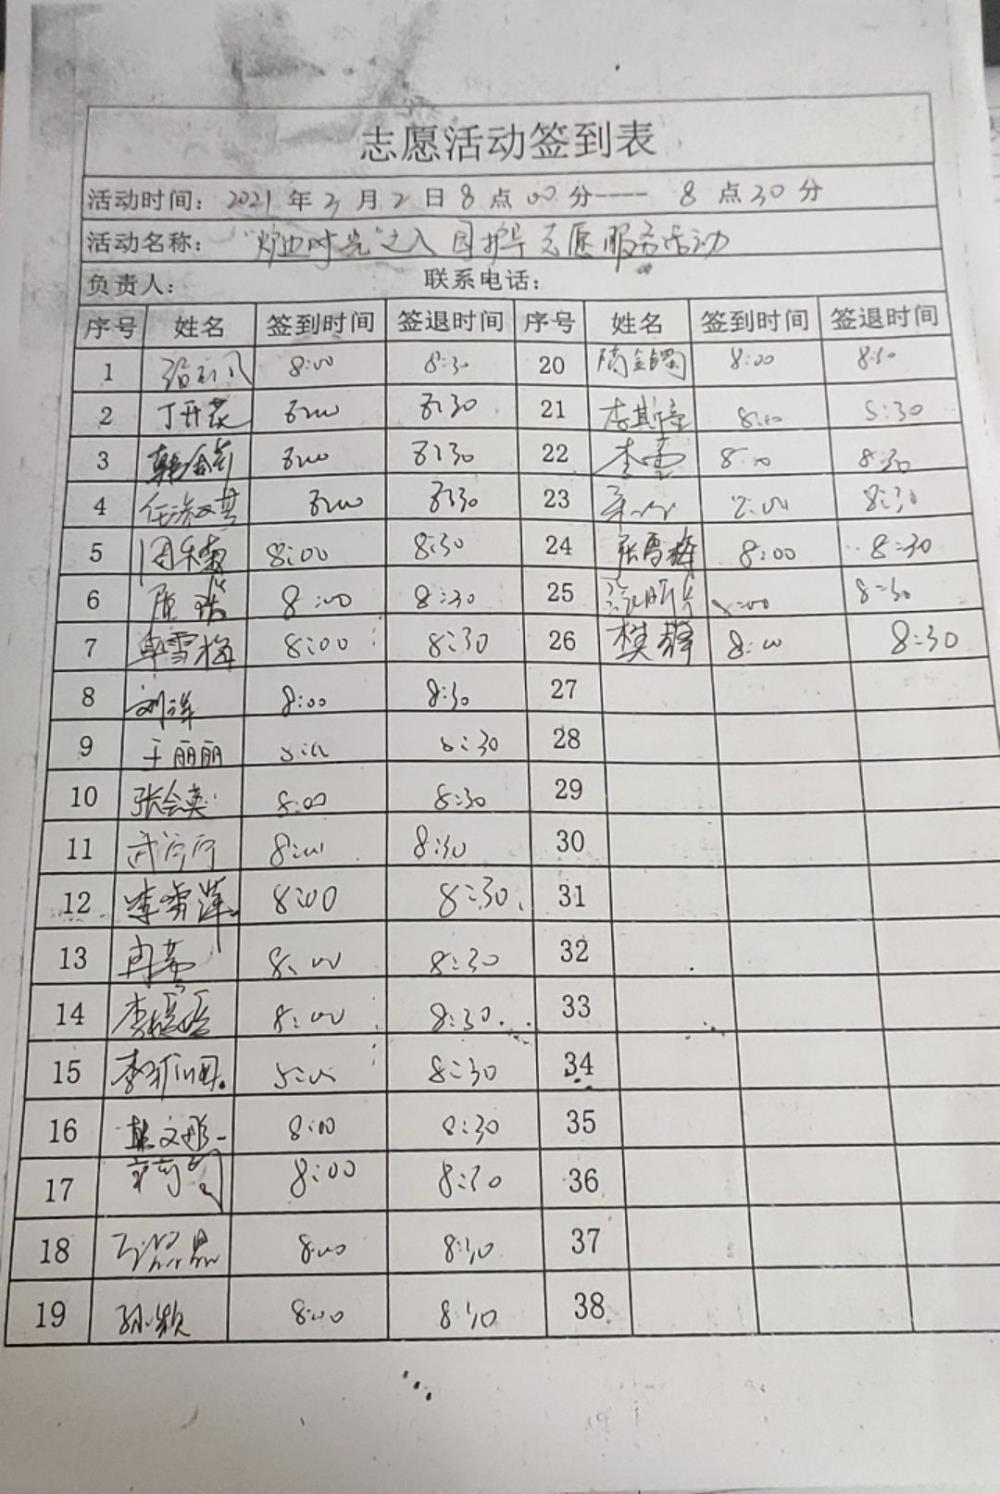 志愿活动签到表
活动时间: 2021 年 3 月 2 日 8 点 00 分---- 8 点 30 分
活动名称: 时光"之入园护导志愿服务活动
负责人: 联系电话:
序号 姓名 签到时间 签退时间 序号 姓名 签到时间 签退时间
1 8:00 8:30 20 8:00 8:30
2 丁开花 8:00 8:30 21 李斯 8:00 8:30
3 8:00 8:30 22 李雪 8:00 8:30
4 任淑英 8:00 8:30 23 8:00 8:30
5 8:00 8:30 24 张雪梅 8:00 8:30
6 陈 8:00 8:30 25 8:00 8:30
7 卓雪梅 8:00 8:30 26 樊静 8:00 8:30
8 刘 8:00 8:30 27
9 王丽丽 8:00 8:30 28
10 张会英 8:00 8:30 29
11 武 8:00 8:30 30
12 李雪莲 8:00 8:30 31
13 冉 8:00 8:30 32
14 李 8:00 8:30 33
15 李 8:00 8:30 34
16 文彤 8:00 8:30 35
17 8:00 8:30 36
18 8:00 8:30 37
19 孙颖 8:00 8:30 38